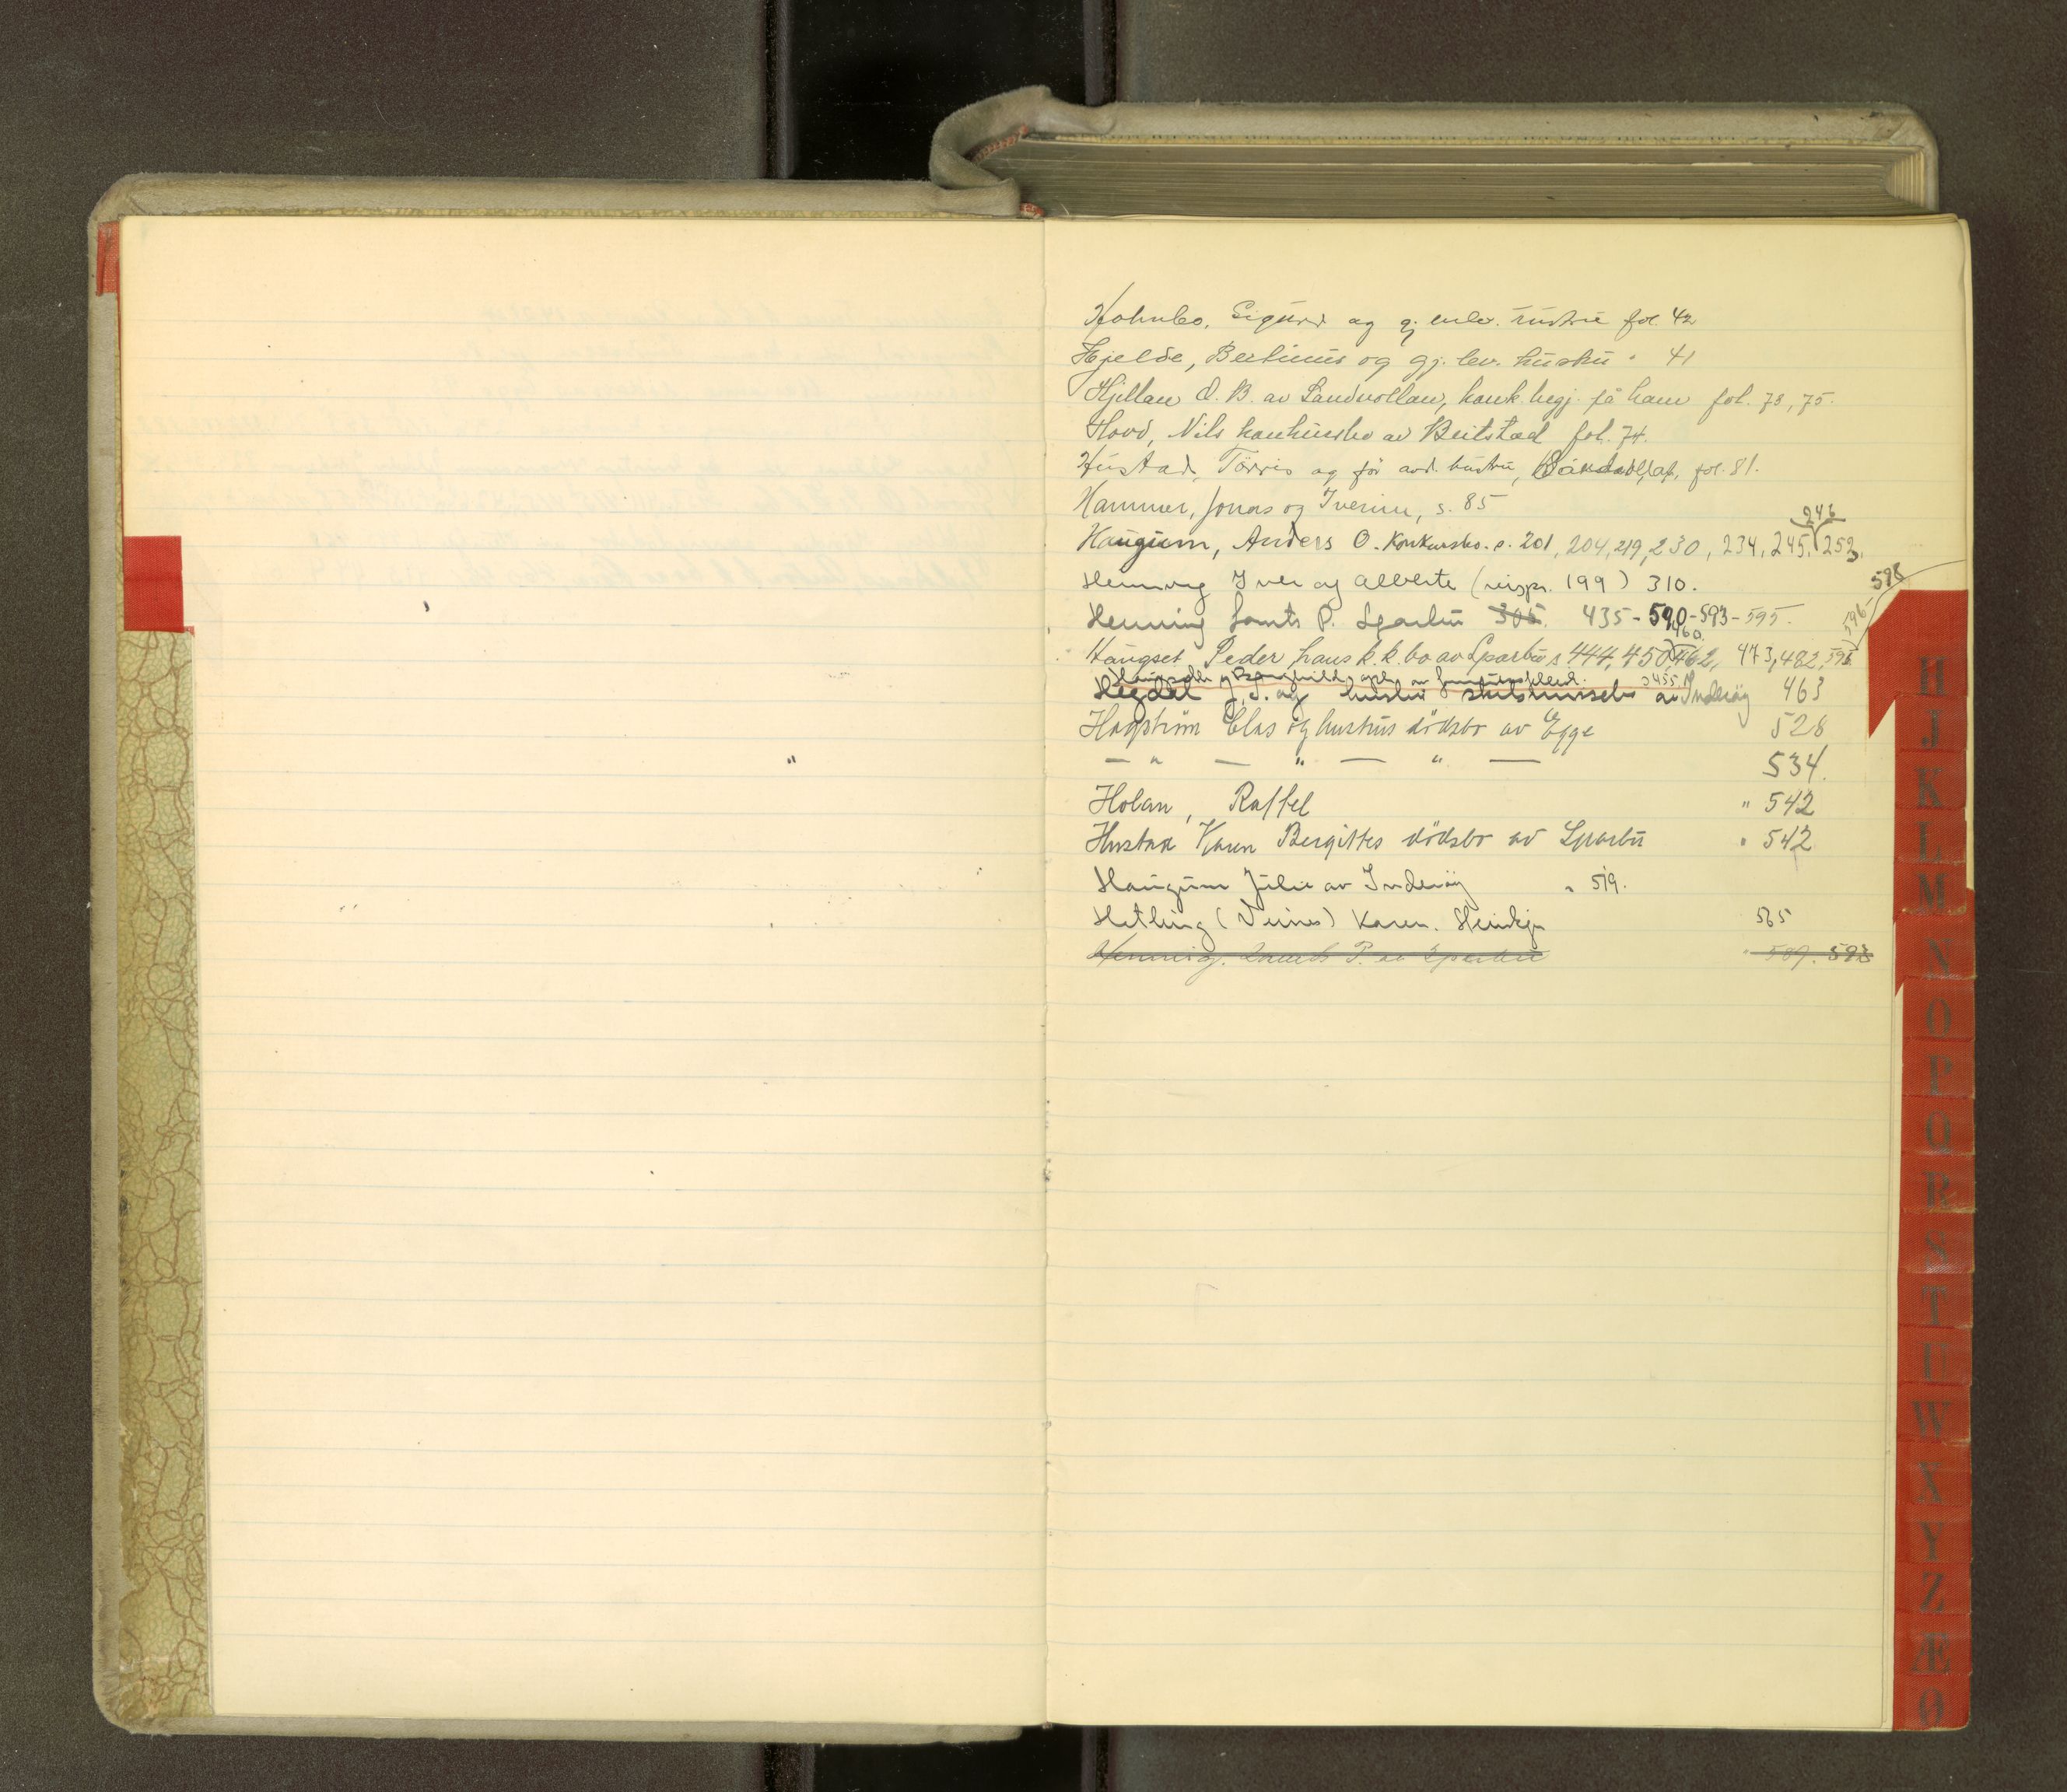 Holmbo, Sigurd og gj. enlev. hustru fol. 42
Hjelde, Bertinus og gj. lev. hustru " 41
Hjellan O. B. av Sandvollan, konk. begj. på ham fol. 73, 75.
Hovd, Nils konkursbo av Beitstad fol. 74.
Hustad, Tørris og før avd. hustru, fol. 81.
Hammer, Jonas og Iverine, s. 85
246
Haugum, Anders O. Konkursbo. s. 201, 204, 219, 230, 234, 245, 252,
Henning Iver og Alberte (respr. 199) 310.
598
Henning Lomts P. Sparbu 305. 435 - 590 - 593 - 595. 596
460
Haugset Peder hans k.k. bo av Sparbu s. 444, 450, 462, 473, 482, 596
Ragnhild 455
Hegdal J. S. og hustru skilsmissebo av Inderøy 463
Hagstrøm Elas og hustrus dødsbo av Egge 528
— " — " — " — 534.
Holan, Raffel " 542
Hustad Karen Bergittes dødsbo av Sparbu " 542
Haugum Julie av Inderøy " 519.
Hetling (Veines) Karen. 565
Henning. Lomts P. av Sparbu " 589. 593
H
J
K
L
M
N
O
P
Q
R
S
T
U
W
X
Y
Z
Æ
Ø